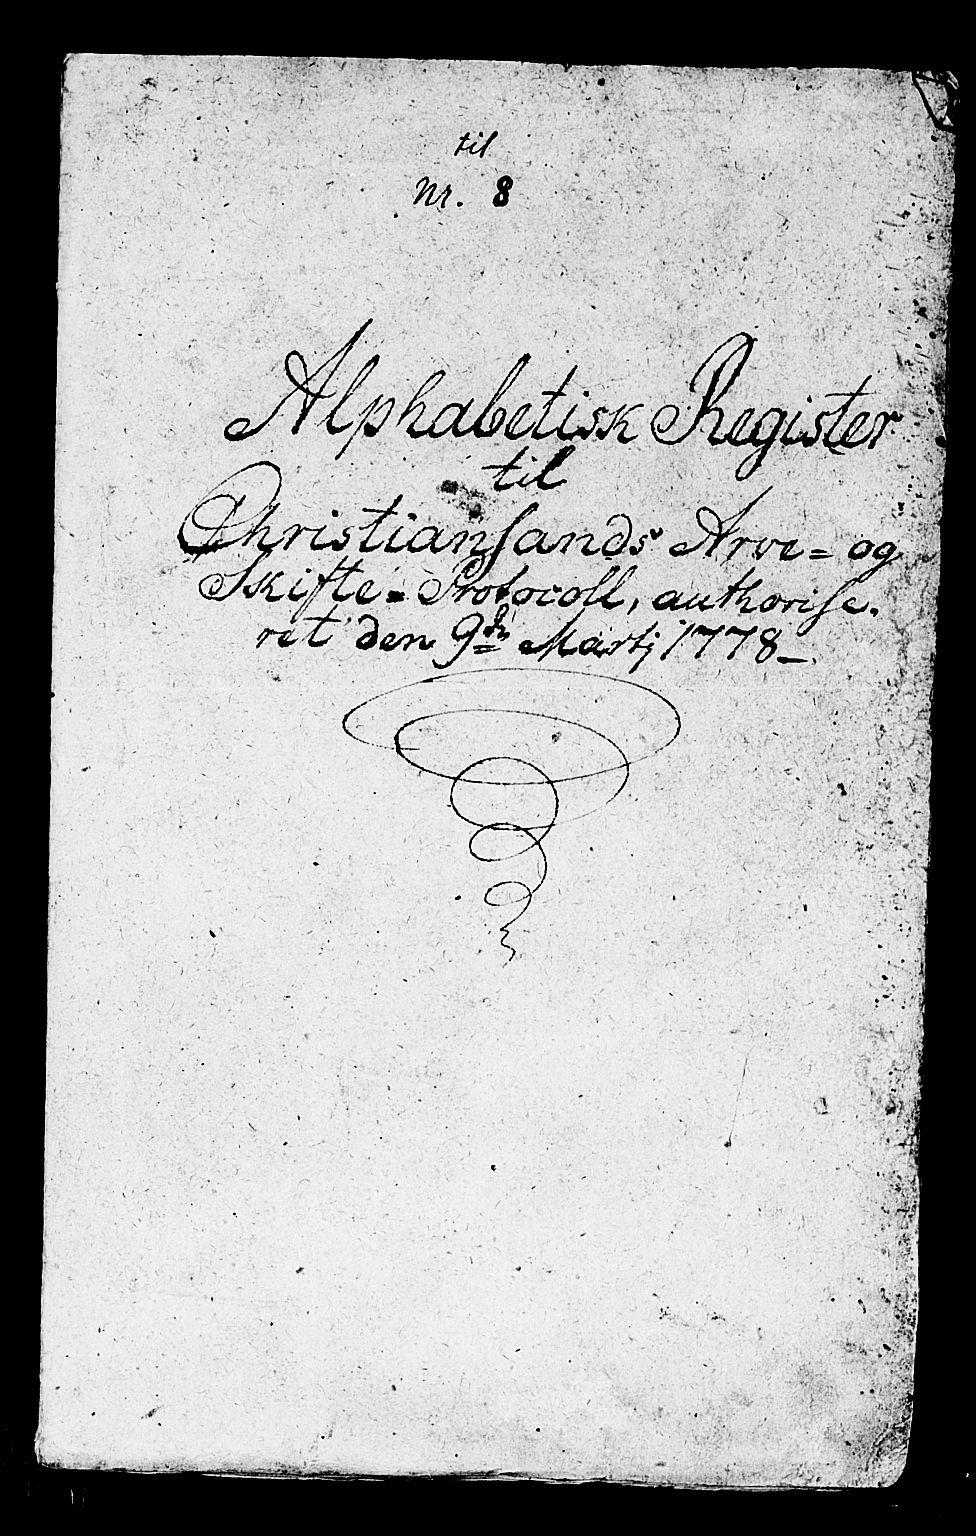 til
Nr. 8
Alphabetisk Register
til
Christiansands Arve= og
Skifte=Protocoll, authorise.
ret den 9de Martj 1778_.